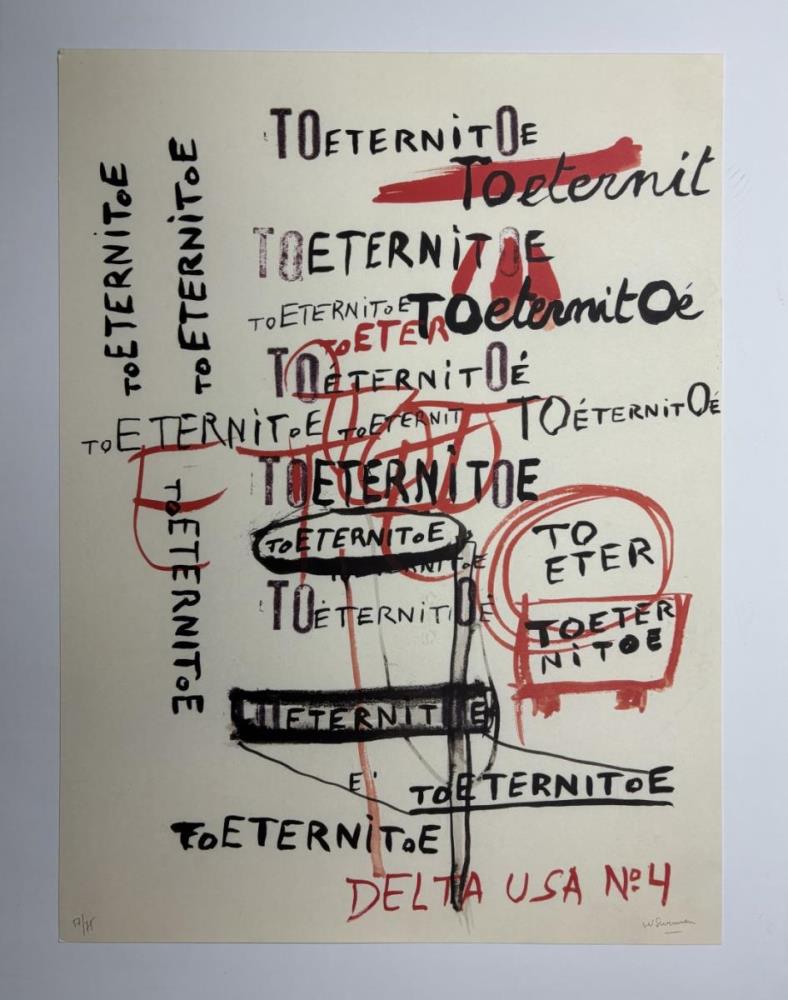 TOETERNITOE
Toeternit
TOETERNITOE
TOETERNITOE
TOeternitOé
TOETER
TOÉTERNITOÉ
TOETERNITOE
TOETERNIT
TOÉTERNITOÉ
TOETERNITOE
TOETERNITOE
TOETERNITOE
TOETERNITOE
TOETERNITOE
TO
ETER
TOETER
NITOE
TOÉTERNITOÉ
TOETERNITOE
TOETERNITOE
E'
TOETERNITOE
TOETERNITOE
DELTA USA Nº4